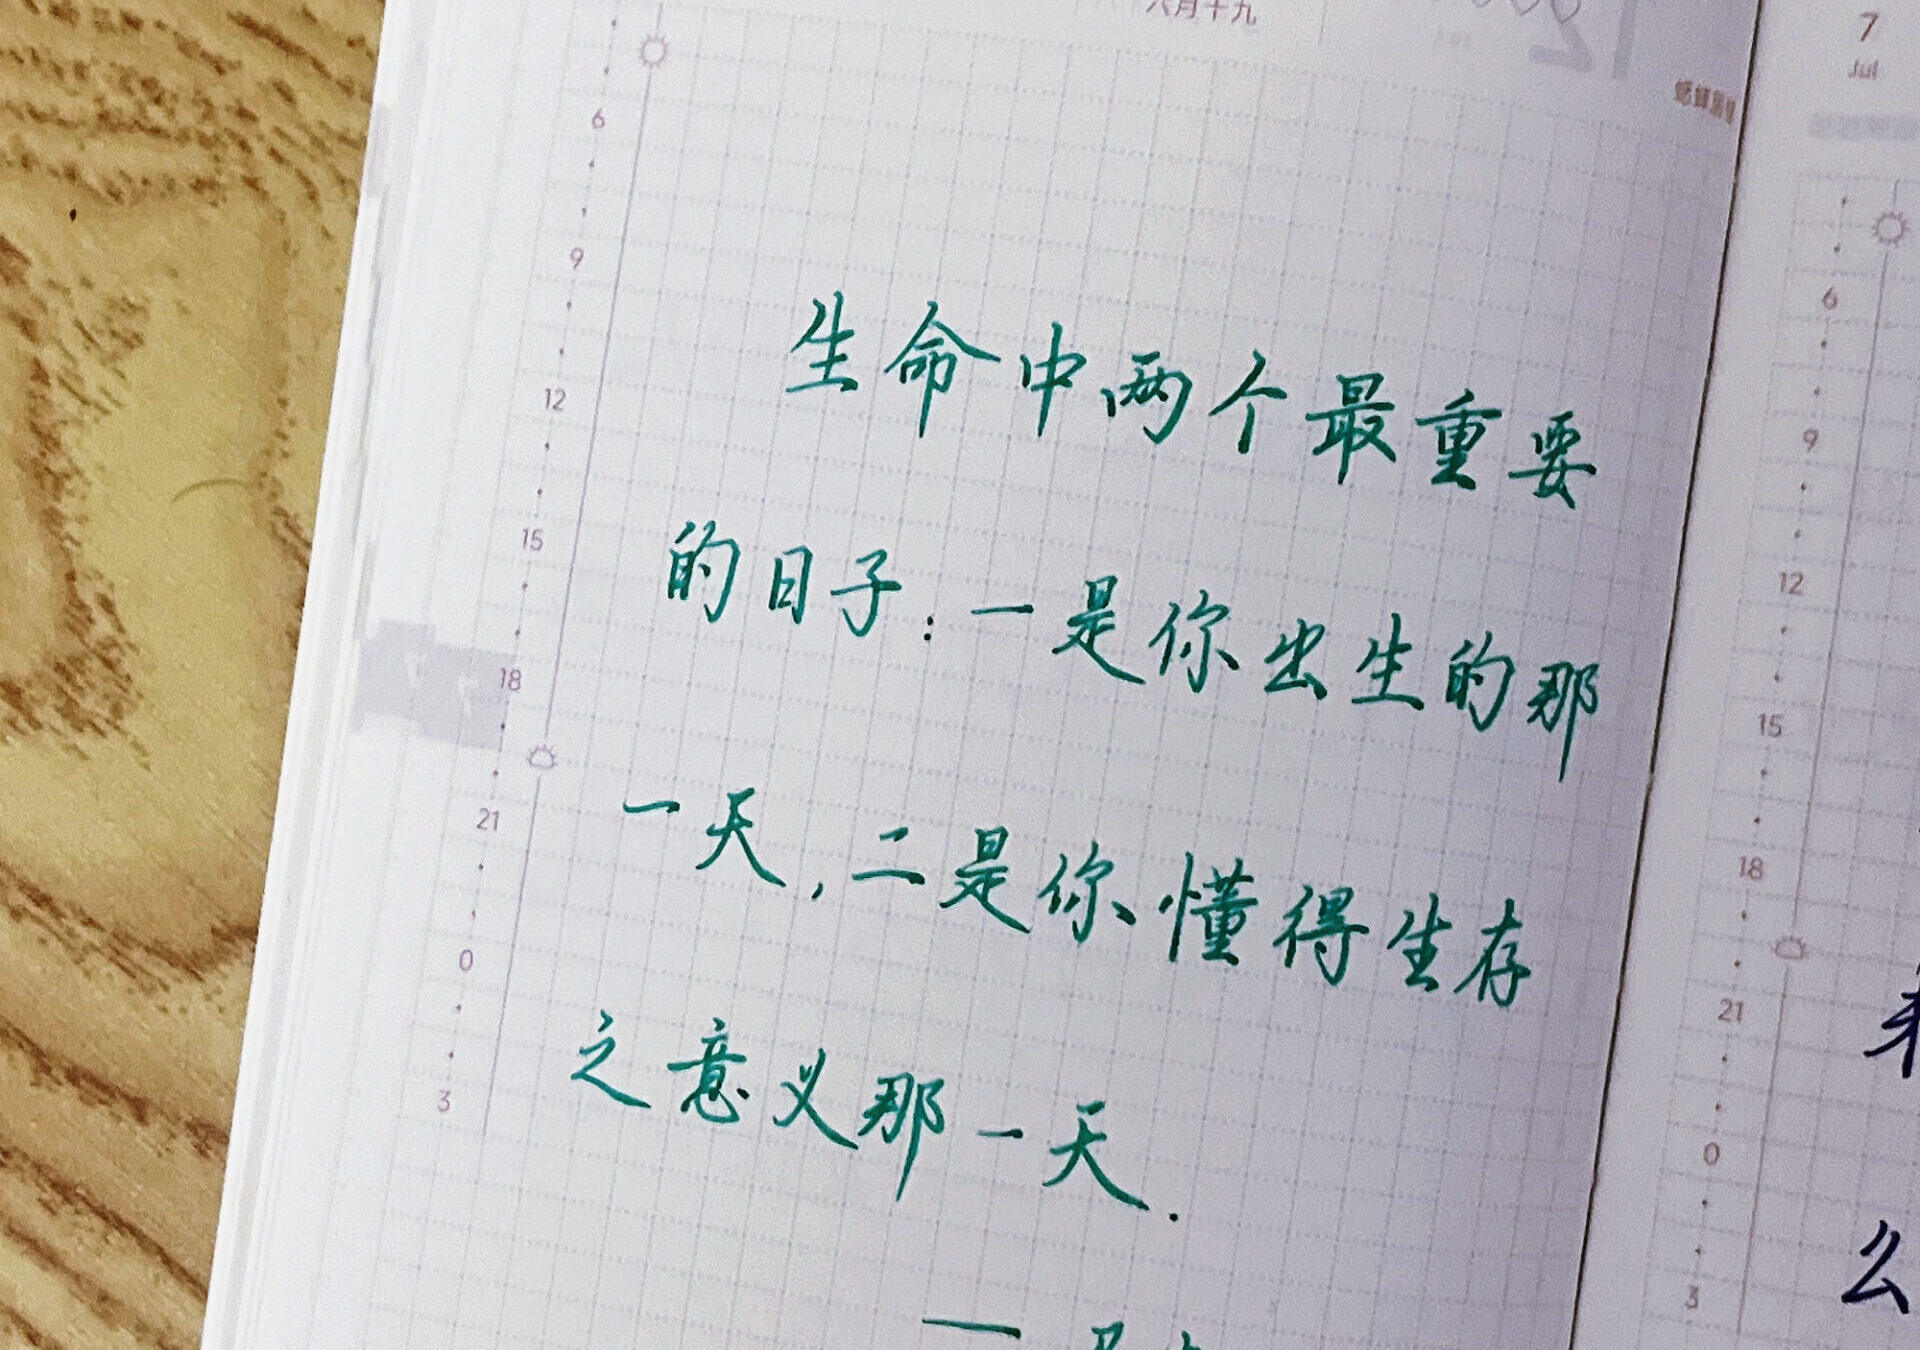 六月十九
12
6
9
12
15
18
21
0
3
生命中两个最重要
的日子：一是你出生的那
一天，二是你懂得生存
之意义那一天.
7
Jul
6
9
12
15
18
21
0
3
么